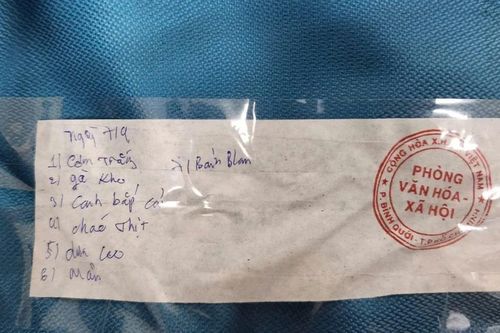 ngày 7/9
1) Cơm Trắng 7) Bánh
2) gà Kho
3) Canh bắp cải
4) cháo Thịt
5) dưa leo
6) Mận
CỘNG HÒA X.H VIỆT NAM
PHÒNG
VĂN HÓA-
XÃ HỘI
P. BÌNH QUỚI - T.P